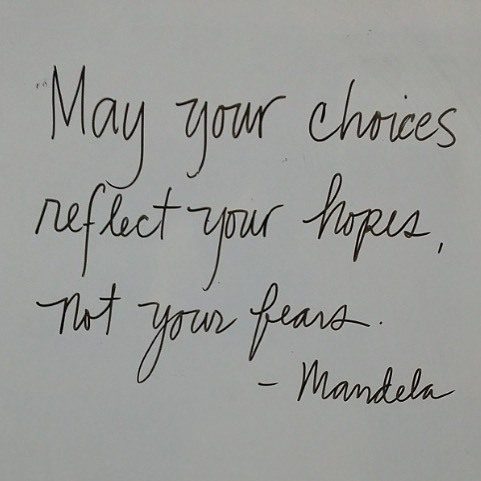 "May your choices
reflect your hopes,
not your fears.
- Mandela